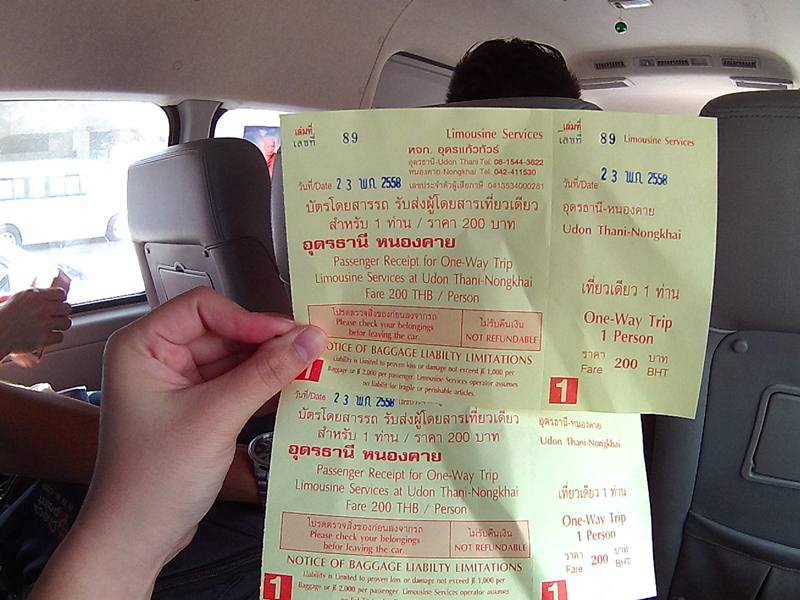 เล่มที่
เลขที่ 89 Limousine Services
หจก. อุดรแก้วทัวร์
อุดรธานี-Udon Thani Tel. 08-1544-3622
หนองคาย-Nongkhai Tel. 042-411530
วันที่/Date 23 พ.ค. 2558 เลขประจำตัวผู้เสียภาษี 0413534000281
บัตรโดยสารรถ รับส่งผู้โดยสารเที่ยวเดียว
สำหรับ 1 ท่าน / ราคา 200 บาท
อุดรธานี หนองคาย
Passenger Receipt for One-Way Trip
Limousine Services at Udon Thani-Nongkhai
Fare 200 THB / Person
โปรดตรวจสิ่งของก่อนลงจากรถ
Please check your belongings
befor leaving the car.
ไม่รับคืนเงิน
NOT REFUNDABLE
OTICE OF BAGGAGE LIABILTY LIMITATIONS
Liability is Limited to proven loss or damage not exceed ฿ 1,000 per
Baggage or ฿ 2,000 per passenger. Limousine Services operator assumes
no liabilit for fragile or perishable articles.
1
เล่มที่
เลขที่ 89 Limousine Services
วันที่/Date 23 พ.ค. 2558
อุดรธานี-หนองคาย
Udon Thani-Nongkhai
เที่ยวเดียว 1 ท่าน
One-Way Trip
1 Person
ราคา 200 บาท
Fare BHT
1
วันที่/Date 23 พ.ค. 2558
บัตรโดยสารรถ รับส่งผู้โดยสารเที่ยวเดียว
สำหรับ 1 ท่าน / ราคา 200 บาท
อุดรธานี หนองคาย
Passenger Receipt for One-Way Trip
Limousine Services at Udon Thani-Nongkhai
Fare 200 THB / Person
โปรดตรวจสิ่งของก่อนลงจากรถ
Please check your belongings
befor leaving the car.
ไม่รับคืนเงิน
NOT REFUNDABLE
NOTICE OF BAGGAGE LIABILTY LIMITATIONS
Liability is Limited to proven loss or damage not exceed ฿ 1,000 per
Baggage or ฿ 2,000 per passenger. Limousine Services operator assumes
1
อุดรธานี-หนองคาย
Udon Thani-Nongkhai
เที่ยวเดียว 1 ท่าน
One-Way Trip
1 Person
ราคา 200 บาท
Fare BHT
1